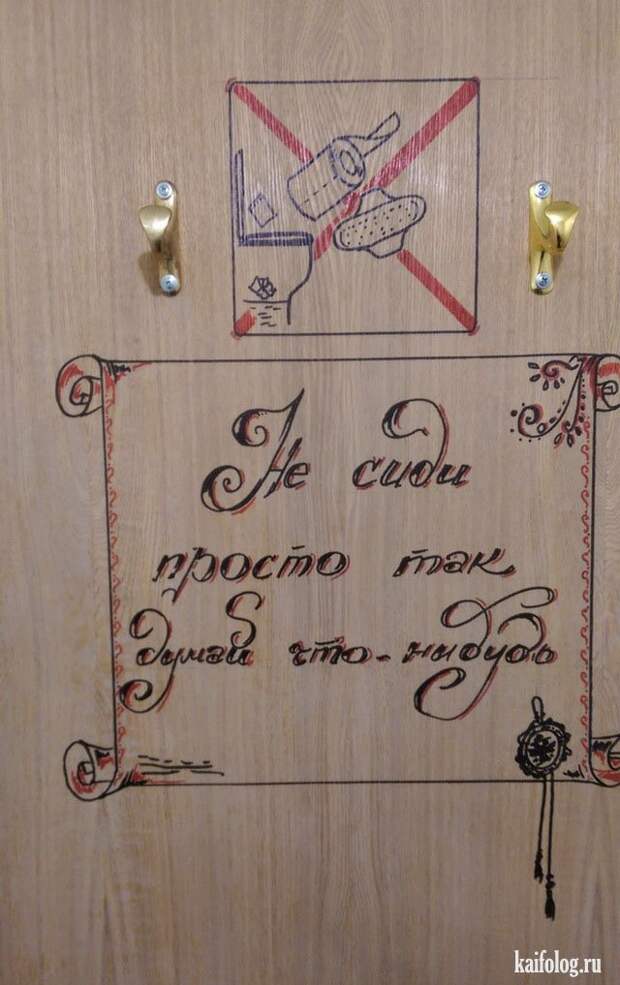 Не сиди
просто так
думай что-нибудь
kaifolog.ru